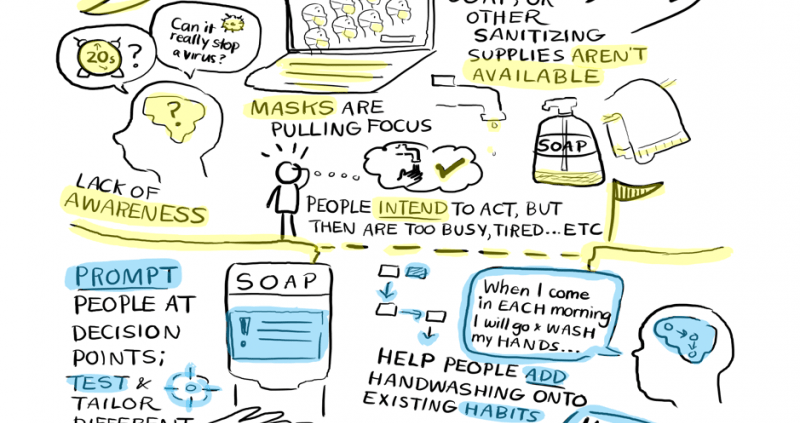 SOAP, OR
OTHER
SANITIZING
SUPPLIES AREN'T
AVAILABLE
20s ?
Can it
really stop
a virus?
MASKS ARE
PULLING FOCUS
?
LACK OF
AWARENESS
SOAP
PEOPLE INTEND TO ACT, BUT
THEN ARE TOO BUSY, TIRED...ETC
PROMPT
PEOPLE AT
DECISION
POINTS;
TEST &
TAILOR
DIFFERENT
SOAP
!
When I come
in EACH morning
I will go & WASH
my HANDS...
HELP PEOPLE ADD
HANDWASHING ONTO
EXISTING HABITS